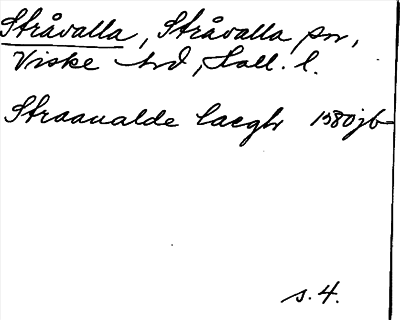 Stråvalla, Stråvalla sn,
Viske hd, Hall. l.
Straaualde laegh 1580 jb
s. 4.